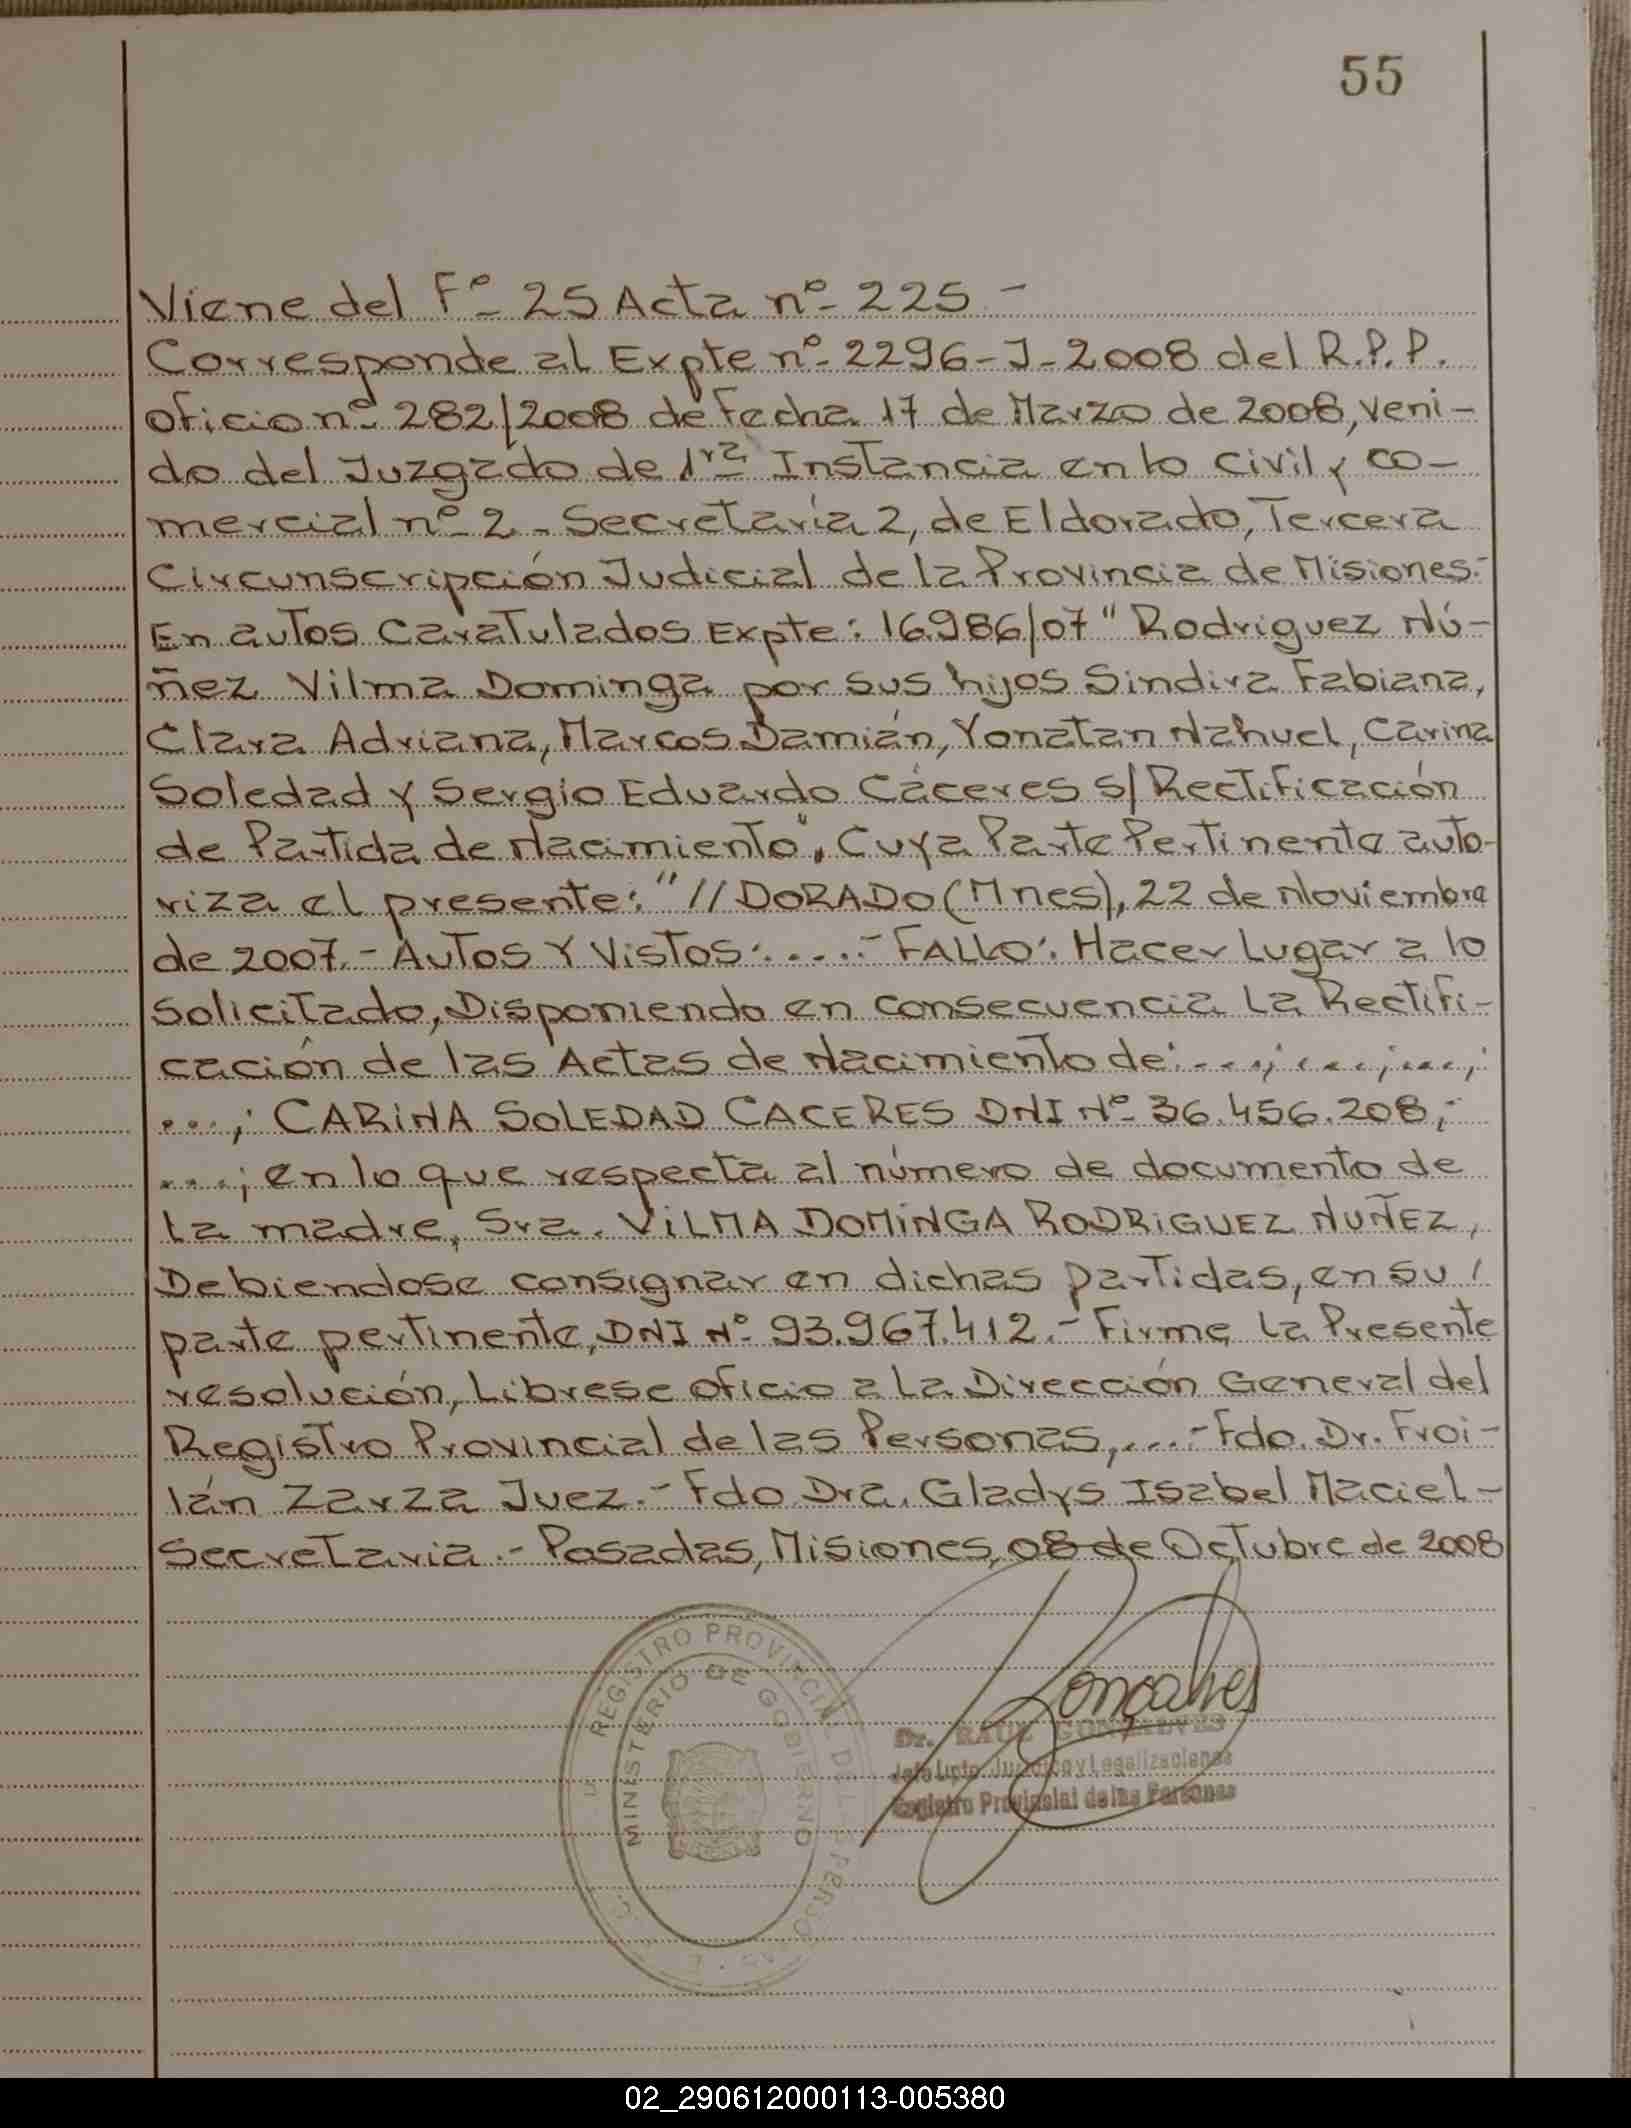 55
Viene del Fº 25 Acta nº 225 -
Corresponde al Expte nº 2296-J-2008 del R.P.P.
oficio nº 282/2008 de fecha 17 de Marzo de 2008, veni-
do del Juzgado de 1ra Instancia en lo Civil y co-
mercial nº 2 - Secretaría 2, de Eldorado, Tercera
Circunscripción Judicial de la Provincia de Misiones.-
En autos Caratulados Expte: 16986/07 "Rodriguez Nú-
ñez Vilma Dominga por sus hijos Sindira Fabiana,
Clara Adriana, Marcos Damián, Yonatan Nahuel, Carina
Soledad y Sergio Eduardo Cáceres s/ Rectificación
de Partida de Nacimiento", Cuya Parte Pertinente auto-
riza el presente: "//DORADO (Mnes), 22 de Noviembre
de 2007.- AUTOS Y VISTOS:....- FALLO: Hacer Lugar a lo
solicitado, Disponiendo en consecuencia La Rectifi-
cación de las Actas de Nacimiento de: ...; ...; ...;
...; CARINA SOLEDAD CACERES DNI Nº 36.456.208;
...; en lo que respecta al número de documento de
La madre, Sra. VILMA DOMINGA RODRIGUEZ NUÑEZ,
Debiendose consignar en dichas partidas, en su /
parte pertinente, DNI Nº 93.967.412.- Firme La Presente
resolución, Librese oficio a La Dirección General del
Registro Provincial de las Personas,...- Fdo. Dr. Froi-
lán Zarza Juez.- Fdo Dra. Gladys Isabel Maciel -
Secretaria.- Posadas, Misiones, 08 de Octubre de 2008
REGISTRO PROVINCIAL DE L PERSONAS
MINISTERIO DE GOBIERNO
Gonçalves
Dr. RAUL GONÇALVES
Jefe Dpto. Jurídico y Legalizaciones
Registro Provincial de las Personas
02_290612000113-005380